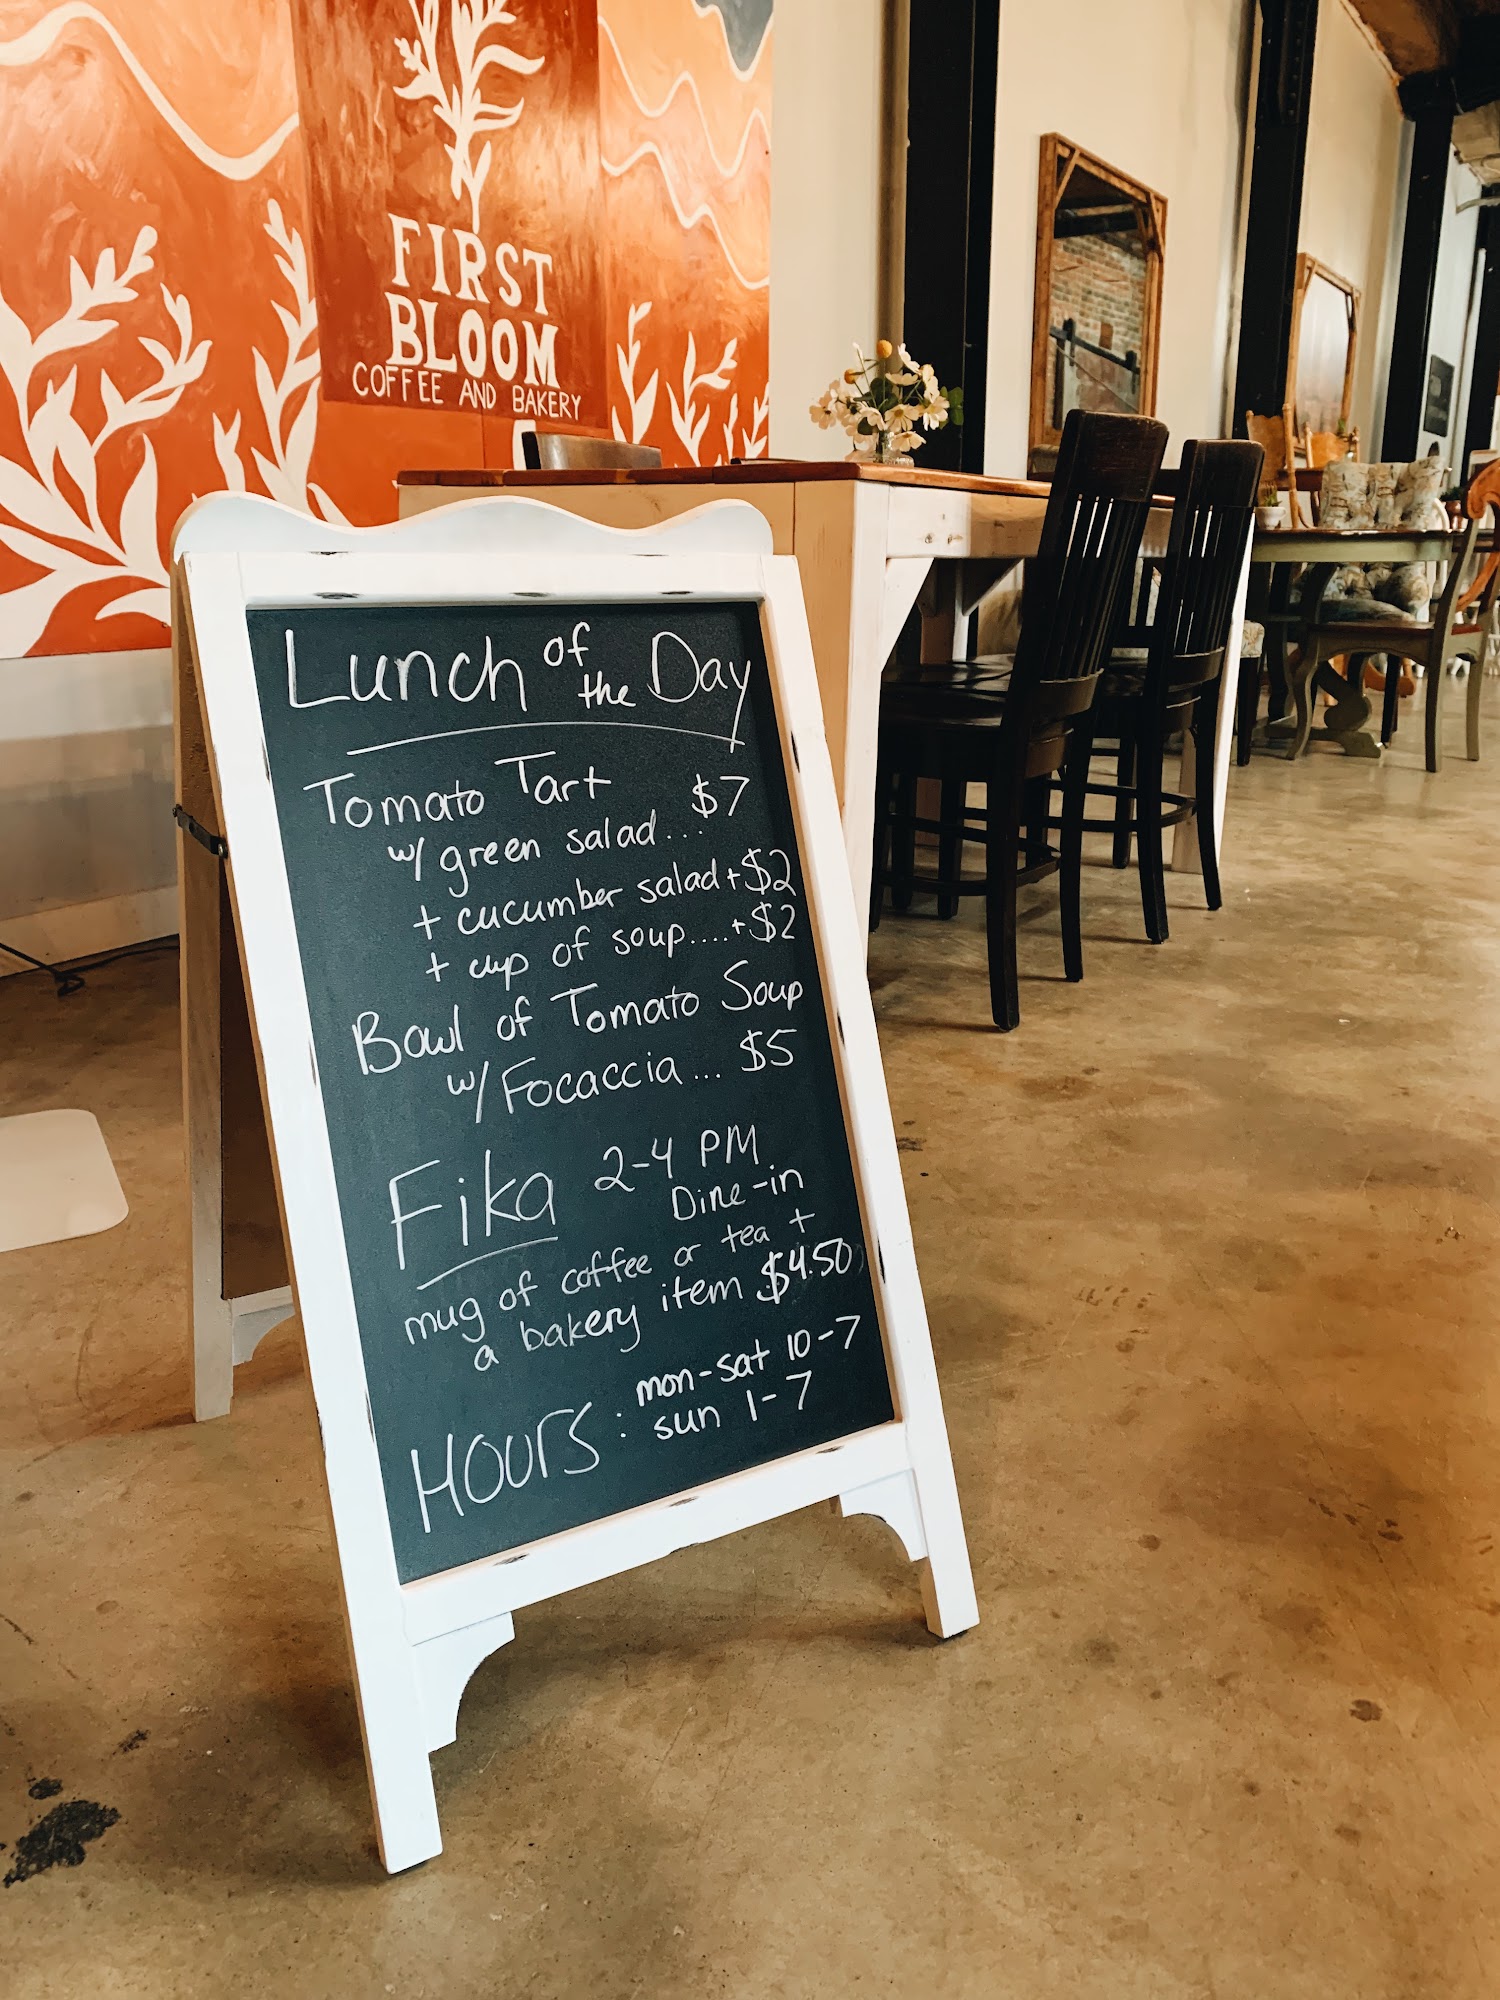 FIRST
BLOOM
COFFEE AND BAKERY
Lunch of the Day
Tomato Tart
w/ green salad... $7
+ cucumber salad + $2
+ cup of soup.... + $2
Bowl of Tomato Soup
w/ Focaccia... $5
Fika 2-4 PM
Dine-in
mug of coffee or tea +
a bakery item $4.50
HOURS: mon-sat 10-7
sun 1-7